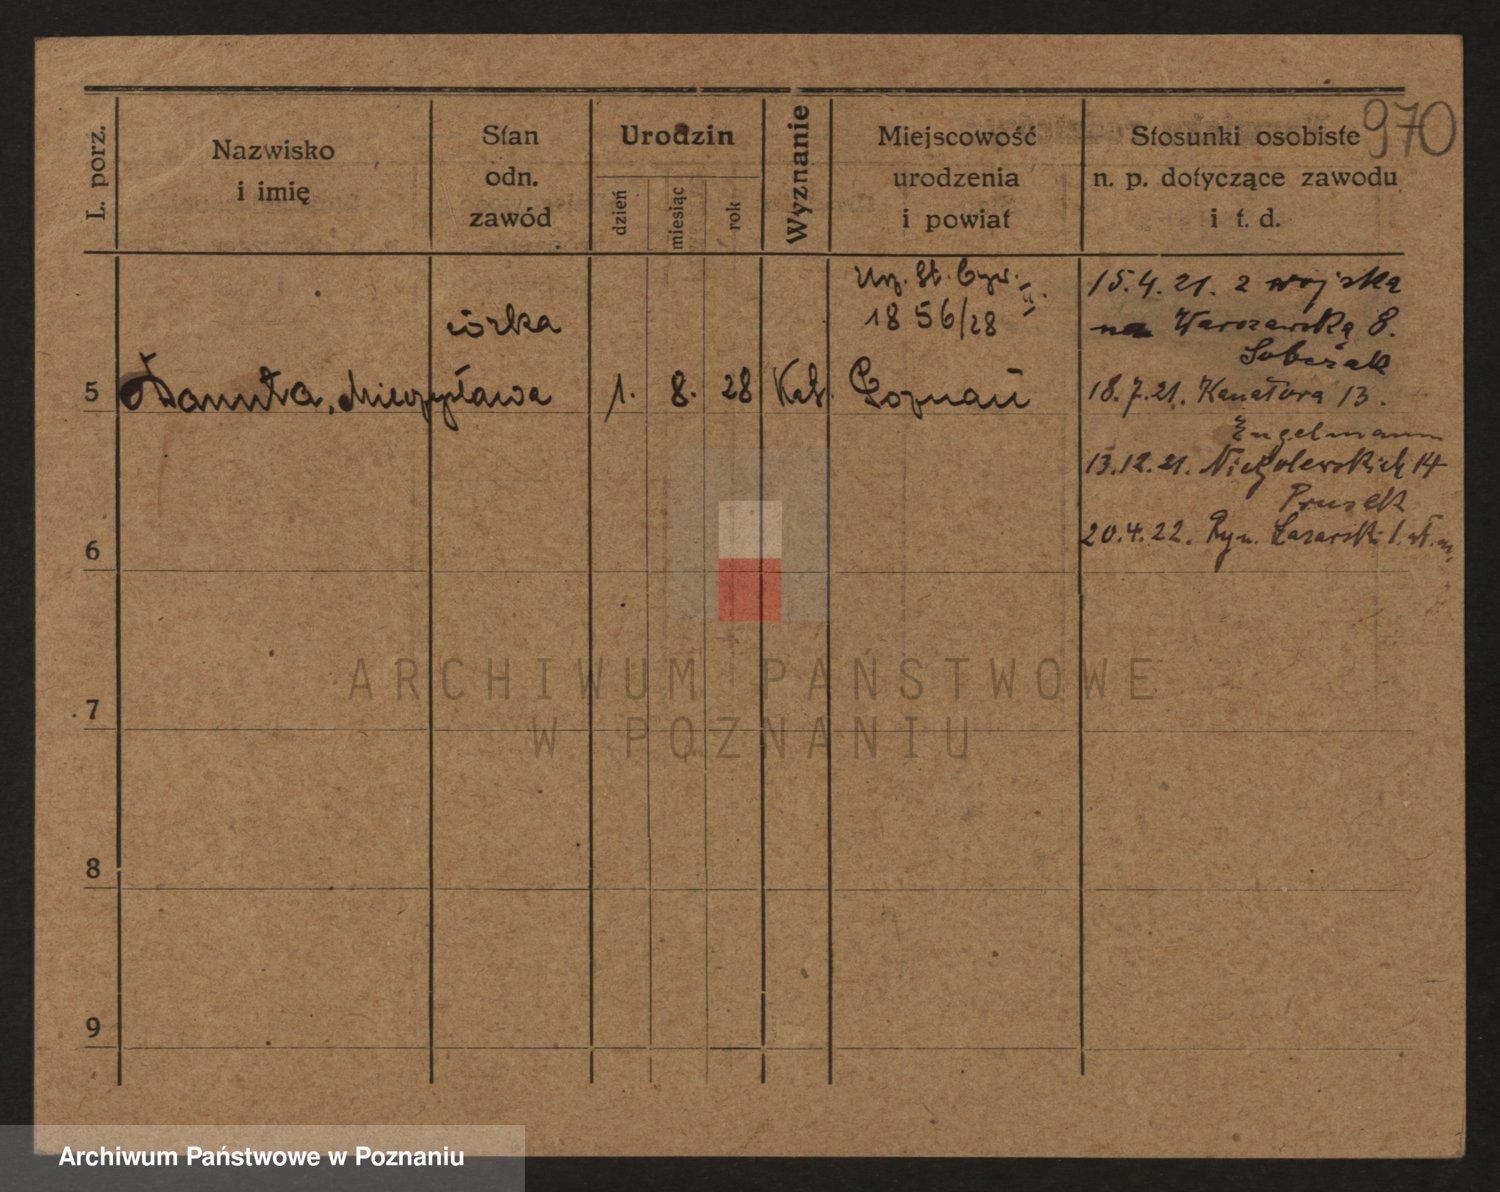 970
L. porz.
Nazwisko
i imię
Stan
odn.
zawód
Urodzin
dzień
miesiąc
rok
Wyznanie
Miejscowość
urodzenia
i powiat
Stosunki osobiste
n. p. dotyczące zawodu
i t. d.
5
córka
Danuta, Mieczysława
1. 8. 28
Kat.
Urz. St. Cyw.
1856/28
Poznań
15.4.21. z wojska
na Warszawską 8.
Sobczak
18.7.21. Kanałowa 13.
Engelmann
13.12.21. Niegolewskich 14
Prusek
20.4.22. Ryn. Łazarski 1.
6
7
8
9
ARCHIWUM PAŃSTWOWE
W POZNANIU
Archiwum Państwowe w Poznaniu